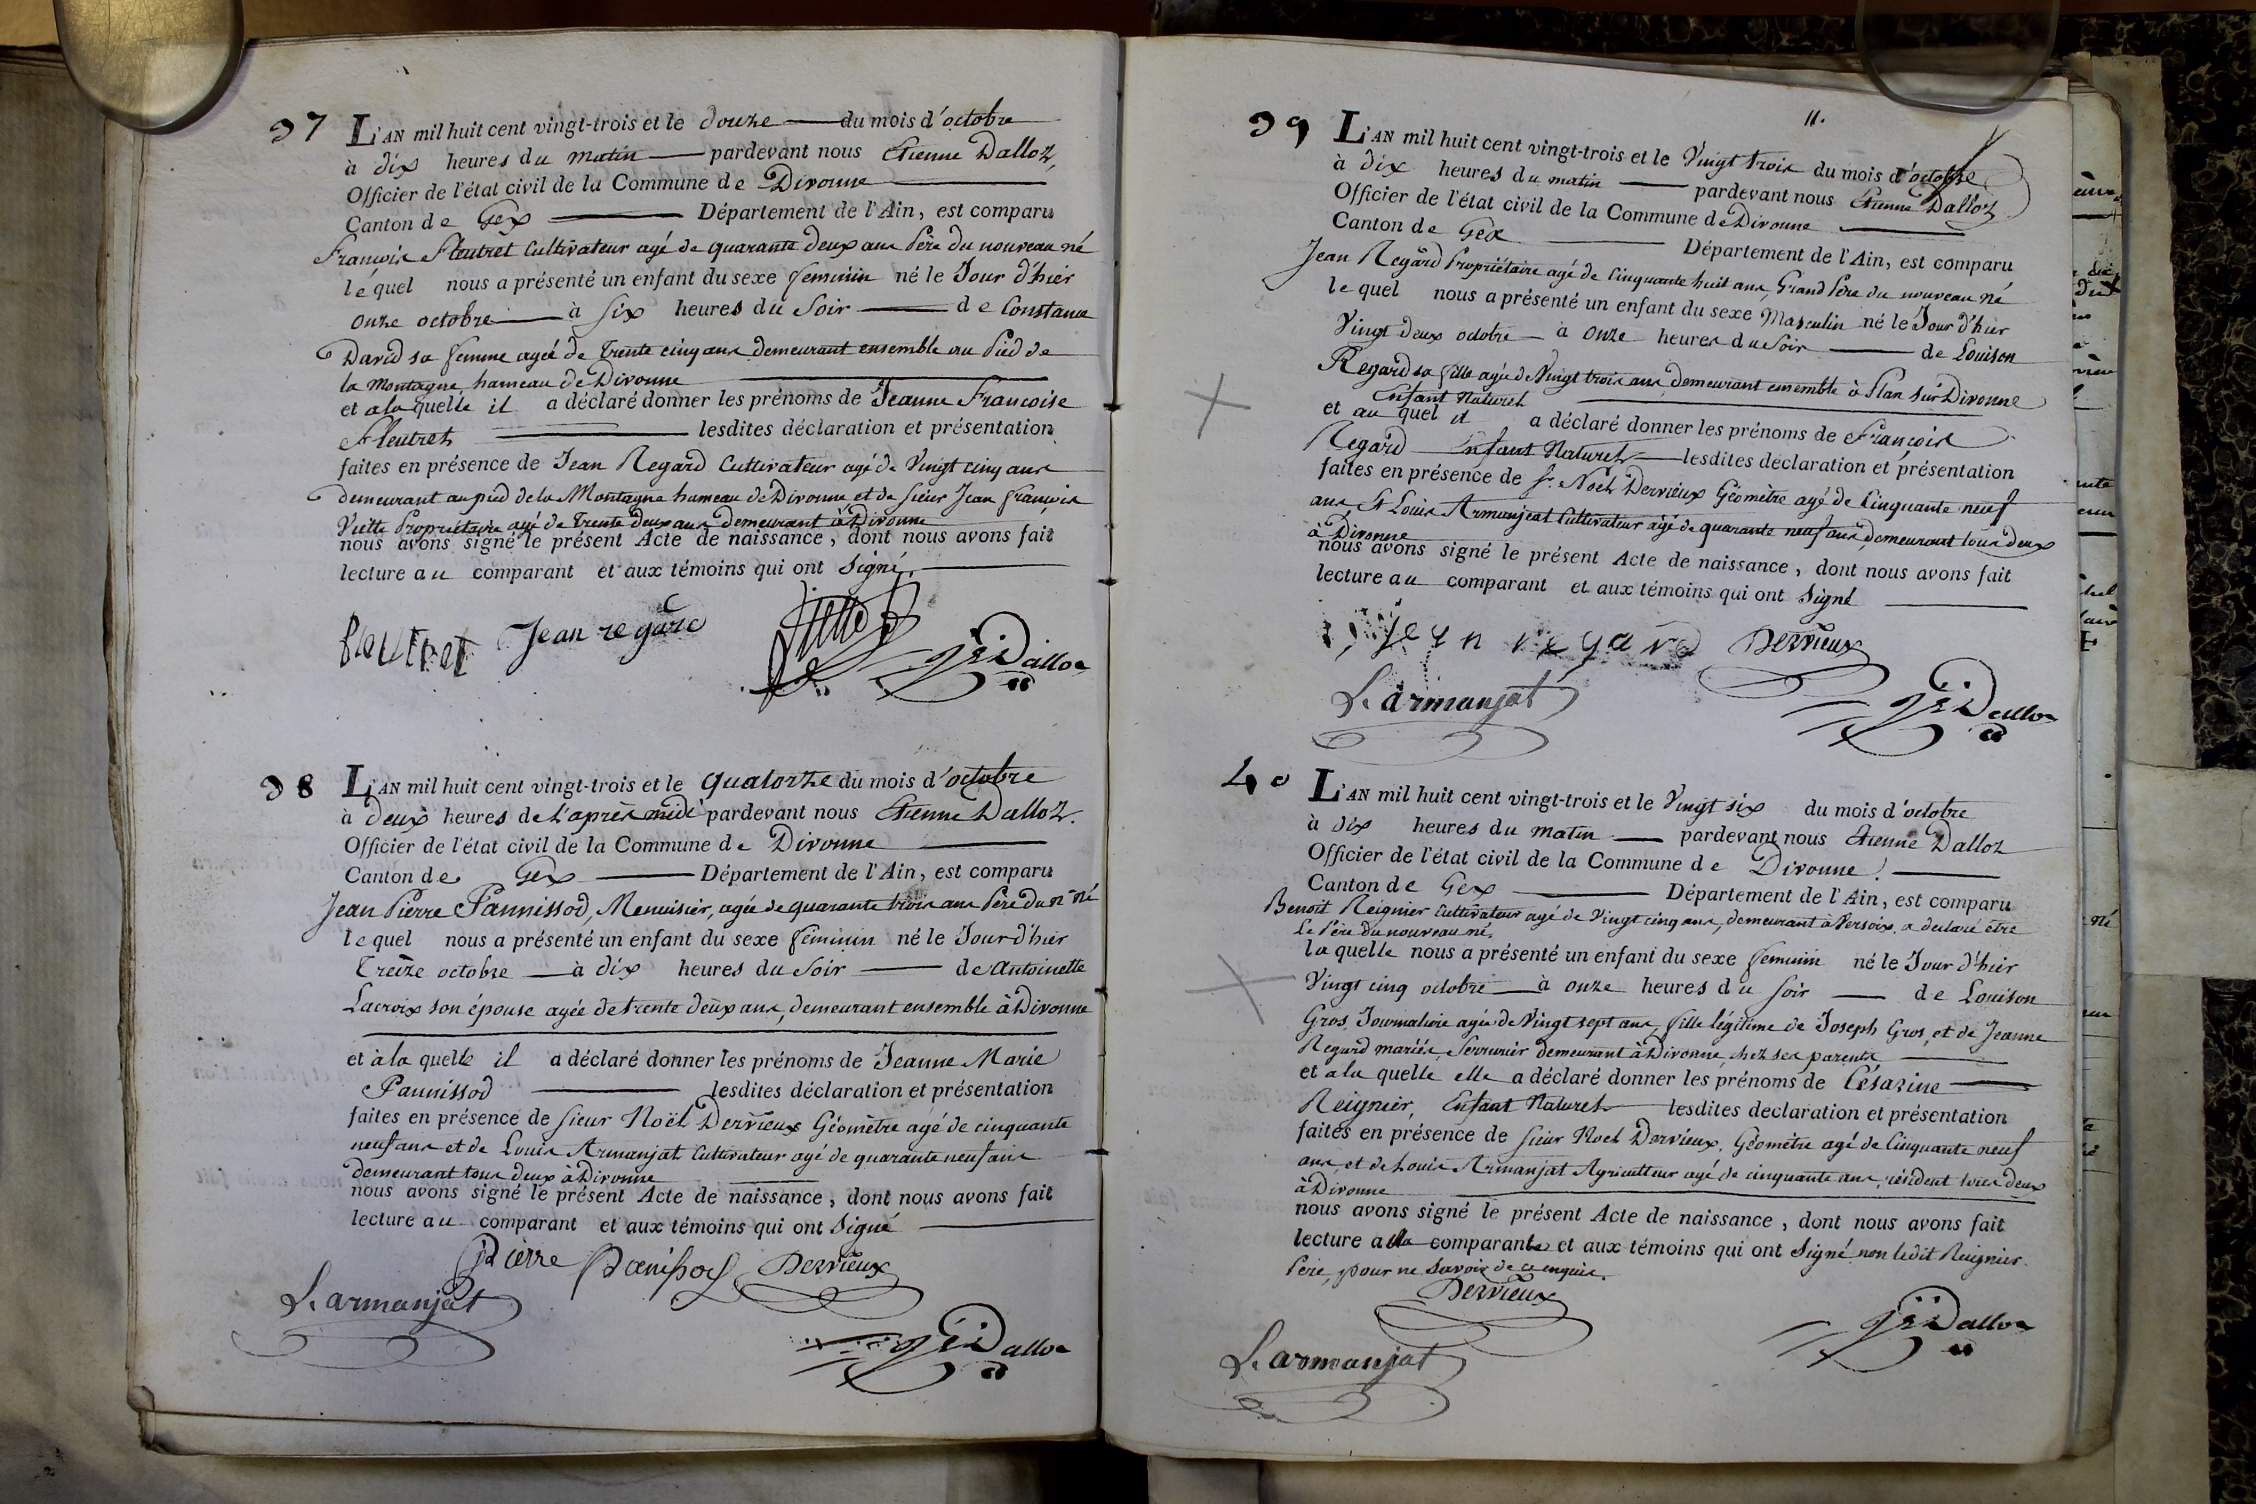 37
L'AN mil huit cent vingt-trois et le douze du mois d'octobre
à dix heures du matin pardevant nous Etienne Dalloz,
Officier de l'état civil de la Commune de Divonne
Canton de Gex Département de l'Ain, est comparu
François Fleutret Cultivateur agé de quarante deux ans Père du nouveau né
lequel nous a présenté un enfant du sexe feminin né le Jour d'hier
onze octobre à six heures du soir de Constance
David sa femme agée de trente cinq ans demeurant ensemble au Pied de
la Montagne, hameau de Divonne
et à la quelle il a déclaré donner les prénoms de Jeanne Francoise
Fleutret lesdites déclaration et présentation
faites en présence de Jean Regard Cultivateur agé de Vingt cinq ans
demeurant au pied de la Montagne hameau de Divonne et de sieur Jean François
Viette Propriétaire agé de trente Deux ans demeurant à Divonne
nous avons signé le présent Acte de naissance, dont nous avons fait
lecture au comparant et aux témoins qui ont Signé.
fleutret Jean regard Viette
E Dalloz
38
L'AN mil huit cent vingt-trois et le quatorze du mois d'octobre
à deux heures de l'après midi pardevant nous Etienne Dalloz.
Officier de l'état civil de la Commune de Divonne
Canton de Gex Département de l'Ain, est comparu
Jean Pierre Pannissod, Menuisier, agée de quarante trois ans Père du n. né
lequel nous a présenté un enfant du sexe feminin né le Jour d'hier
Treize octobre à dix heures du soir de Antoinette
Lacroix son épouse agée de trente deux ans, demeurant ensemble à Divonne
et à la quelle il a déclaré donner les prénoms de Jeanne Marie
Pannissod lesdites déclaration et présentation
faites en présence de sieur Noël Dervieux Géomètre agé de cinquante
neuf ans et de Louis Armanjat Cultivateur agé de quarante neuf ans
demeurant tous deux à Divonne
nous avons signé le présent Acte de naissance, dont nous avons fait
lecture au comparant et aux témoins qui ont Signé
Pierre Panissod Dervieux
L. armanjat
E Dalloz
11.
39
L'AN mil huit cent vingt-trois et le Vingt trois du mois d'octobre
à dix heures du matin pardevant nous Etienne Dalloz
Officier de l'état civil de la Commune de Divonne
Canton de Gex Département de l'Ain, est comparu
Jean Regard Propriétaire agé de Cinquante huit ans, Grand Père du nouveau né
lequel nous a présenté un enfant du sexe Masculin né le Jour d'hier
Vingt deux octobre à onze heures du soir de Louison
Regard sa fille agée de Vingt trois ans demeurant ensemble à Plan sur Divonne
Enfant Naturel
et au quel il a déclaré donner les prénoms de François
Regard Enfant Naturel lesdites déclaration et présentation
faites en présence de Sr. Noël Dervieux Géomètre agé de Cinquante neuf
ans, Et Louis Armanjeat Cultivateur agé de quarante neuf ans, demeurant tous deux
à Divonne
nous avons signé le présent Acte de naissance, dont nous avons fait
lecture au comparant et aux témoins qui ont signé
Jean regard Dervieux
L. armanjat
E Dalloz
40
L'AN mil huit cent vingt-trois et le Vingt six du mois d'octobre
à dix heures du matin pardevant nous Etienne Dalloz
Officier de l'état civil de la Commune de Divonne
Canton de Gex Département de l'Ain, est comparu
Benoît Reignier Cultivateur agé de Vingt cinq ans, demeurant à Versoix, a declaré être
le Père du nouveau né,
la quelle nous a présenté un enfant du sexe feminin né le Jour d'hier
Vingt cinq octobre à onze heures du soir de Louison
Gros, Journalière agée de Vingt sept ans, fille légitime de Joseph Gros, et de Jeanne
Regard mariés, Serrurier demeurant à Divonne chez ses parents
et à la quelle elle a déclaré donner les prénoms de Césarine
Reignier, Enfant Naturel lesdites declaration et présentation
faites en présence de sieur Noel Dervieux, Géomètre agé de Cinquante neuf
ans, et de Louis Armanjat Agriculteur agé de cinquante ans, résident tous deux
à Divonne
nous avons signé le présent Acte de naissance, dont nous avons fait
lecture a la comparante et aux témoins qui ont Signé non ledit Reignier
Père, pour ne savoir de ce enquis.
Dervieux
E Dalloz
L. armanjat